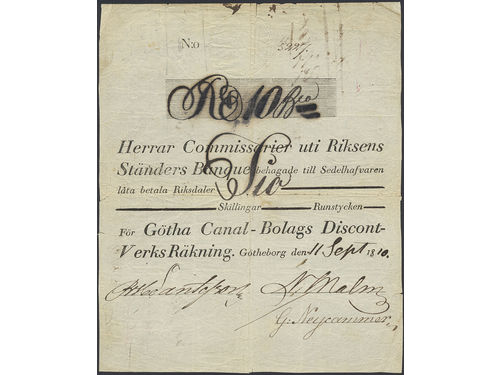 N:o
Rd. 10 Bco
Herrar Commissarier uti Riksens
Ständers Banque behagade till Sedelhafvaren
låta betala Riksdaler Tio
Skillingar Runstycken
För Götha Canal-Bolags Discont-
Verks Räkning. Götheborg den 11 Sept 1810.
Malm
G: Neijcammer